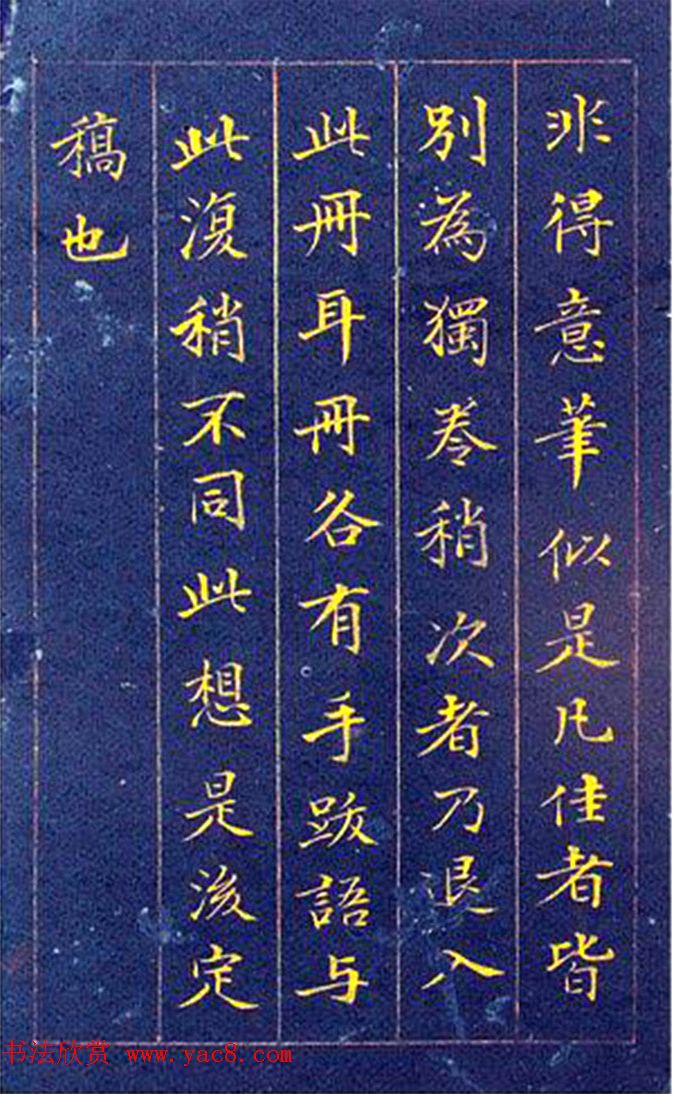 非得意筆似是凡佳者皆
別為獨卷稍次者乃退入
此冊耳冊各有手跋語与
此復稍不同此想是後定
稿也
书法欣赏 www.yac8.com